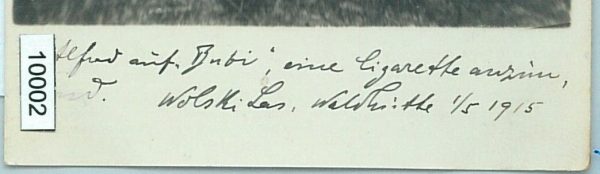 Alfred auf „Bubi“, eine Cigarette anzün,
end. Wolski Las, Waldhütte 1/5 1915
10002